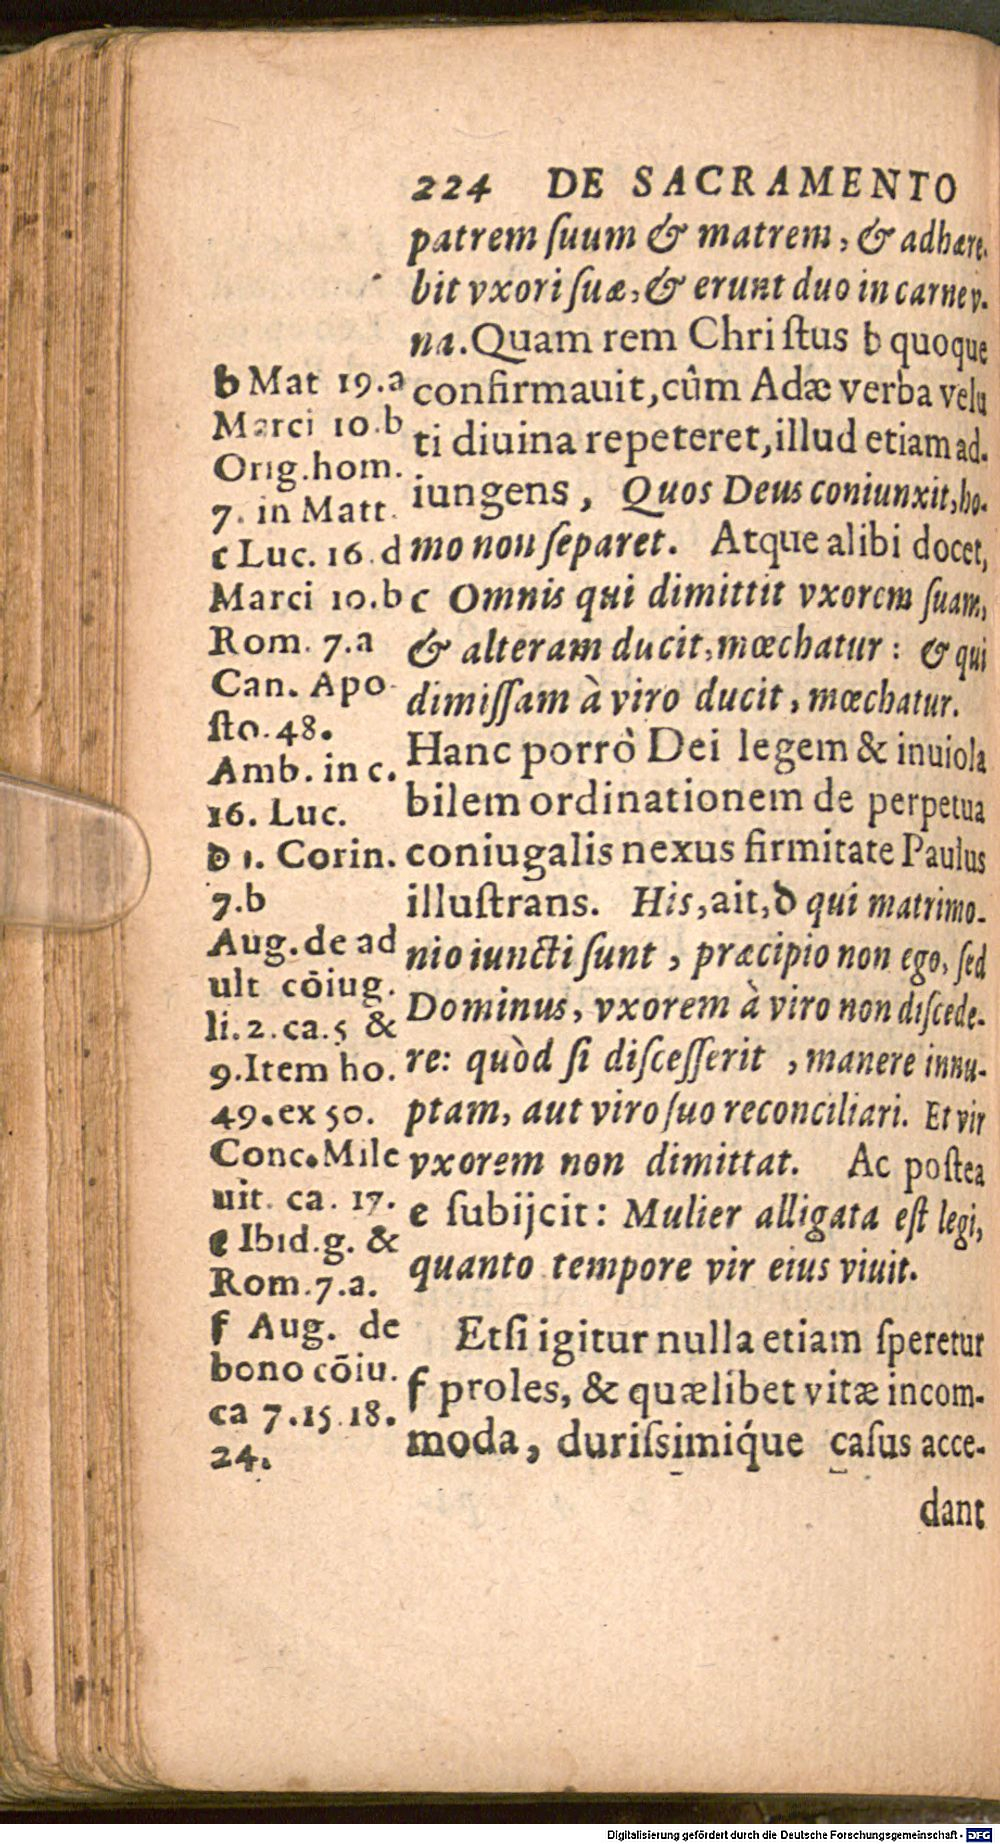 224 DE SACRAMENTO
patrem ſuum & matrem, & adhære-
bit vxori ſuæ, & erunt duo in carne v-
na. Quam rem Chriſtus b quoque
confirmauit, cûm Adæ verba velu
ti diuina repeteret, illud etiam ad-
iungens, Quos Deus coniunxit, ho-
mo non ſeparet. Atque alibi docet,
c Omnis qui dimittit vxorem ſuam,
& alteram ducit, mœchatur: & qui
dimiſſam à viro ducit, mœchatur.
Hanc porrò Dei legem & inuiola
bilem ordinationem de perpetua
coniugalis nexus firmitate Paulus
illuſtrans. His, ait, d qui matrimo-
nio iuncti ſunt, præcipio non ego, ſed
Dominus, vxorem à viro non diſcede-
re: quòd ſi diſceſſerit, manere innu-
ptam, aut viro ſuo reconciliari. Et vir
vxorem non dimittat. Ac poſtea
e ſubijcit: Mulier alligata eſt legi,
quanto tempore vir eius viuit.
Etſi igitur nulla etiam ſperetur
f proles, & quælibet vitæ incom-
moda, duriſsimiq́ue caſus acce-
dant
b Mat 19.a
Marci 10.b
Orig.hom.
7. in Matt.
c Luc. 16.d
Marci 10.b
Rom. 7.a
Can. Apo
ſto. 48.
Amb. in c.
16. Luc.
d 1. Corin.
7.b
Aug. de ad
ult cōiug.
li. 2. ca. 5 &
9. Item ho.
49. ex 50.
Conc. Mile
uit. ca. 17.
e Ibid.g. &
Rom. 7.a.
f Aug. de
bono cōiu.
ca 7.15.18.
24.
Digitalisierung gefördert durch die Deutsche Forschungsgemeinschaft - DFG